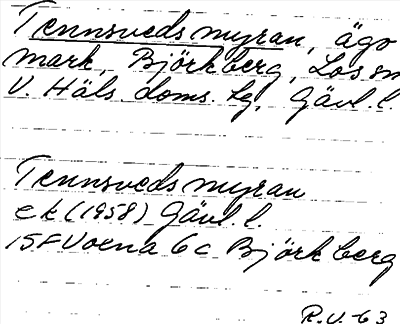 Tennsvedsmyran, ägo
mark, Björkberg, Los sn
V. Häls. doms. sg, Gävl. l.
Tennsvedsmyran
ek (1958) Gävl. l.
15F Voxna 6c Björkberg
R.V. 63